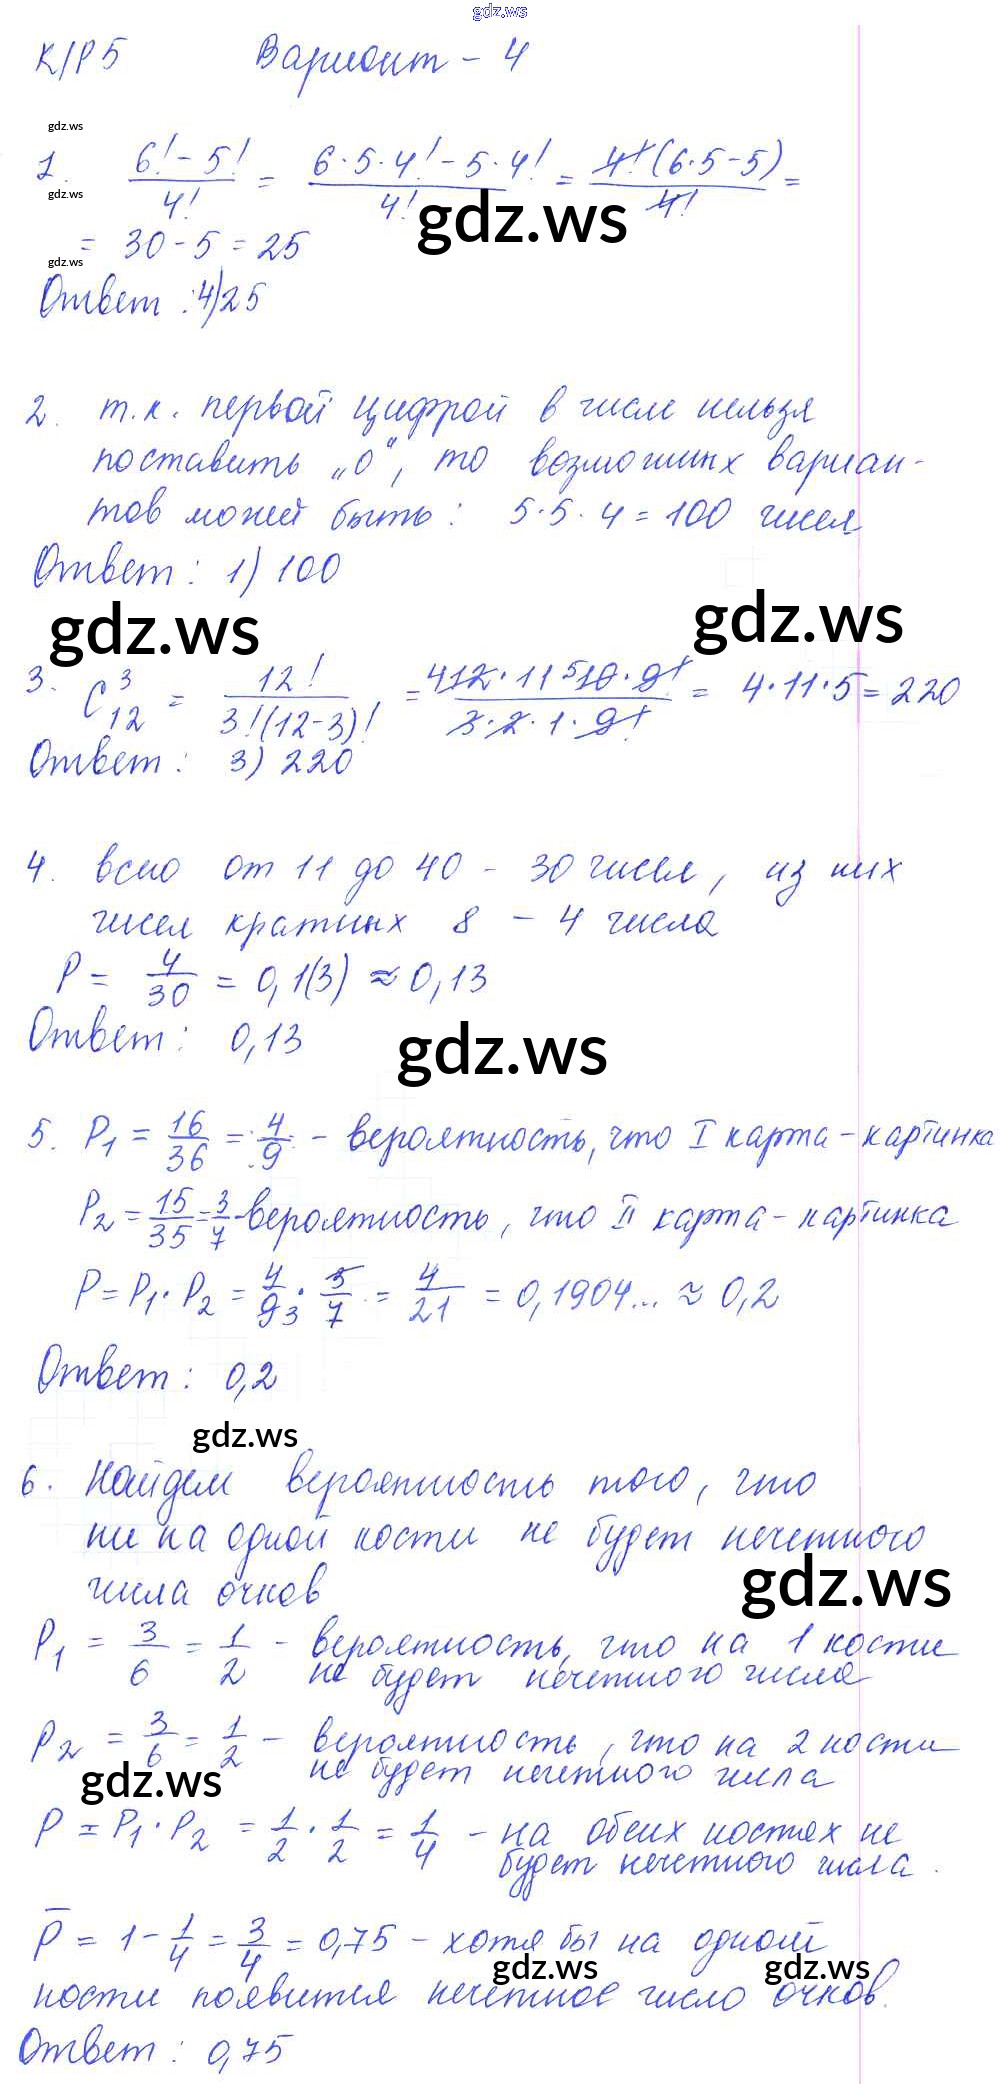 gdz.ws
К/Р 5 Вариант - 4
gdz.ws
1. (6! - 5!)/4! = (6·5·4! - 5·4!)/4! = 4!(6·5-5)/4! =
gdz.ws
gdz.ws
= 30 - 5 = 25
gdz.ws
Ответ: 4) 25
2. т.к. первой цифрой в числе нельзя
поставить „0“, то возможных вариан-
тов может быть: 5·5·4 = 100 чисел
Ответ: 1) 100
gdz.ws
gdz.ws
3. C³₁₂ = 12!/(3!(12-3)!) = (4 12·11 5 10·9!)/(3·2·1·9!) = 4·11·5 = 220
Ответ: 3) 220
4. всего от 11 до 40 - 30 чисел, из них
чисел кратных 8 - 4 числа
P = 4/30 = 0,1(3) ≈ 0,13
Ответ: 0,13
gdz.ws
5. P₁ = 16/36 = 4/9 - вероятность, что I карта - картинка
P₂ = 15/35 = 3/7 - вероятность, что II карта - картинка
P = P₁·P₂ = 4/9 3 · 3/7 = 4/21 = 0,1904... ≈ 0,2
Ответ: 0,2
gdz.ws
6. Найдем вероятность того, что
ни на одной кости не будет нечетного
gdz.ws
числа очков
P₁ = 3/6 = 1/2 - вероятность, что на 1 кости
не будет нечетного числа
P₂ = 3/6 = 1/2 - вероятность, что на 2 кости
не будет нечетного числа
gdz.ws
P = P₁·P₂ = 1/2 · 1/2 = 1/4 - на обеих костях не
будет нечетного числа.
P̄ = 1 - 1/4 = 3/4 = 0,75 - хотя бы на одной
gdz.ws
gdz.ws
кости появится нечетное число очков.
Ответ: 0,75